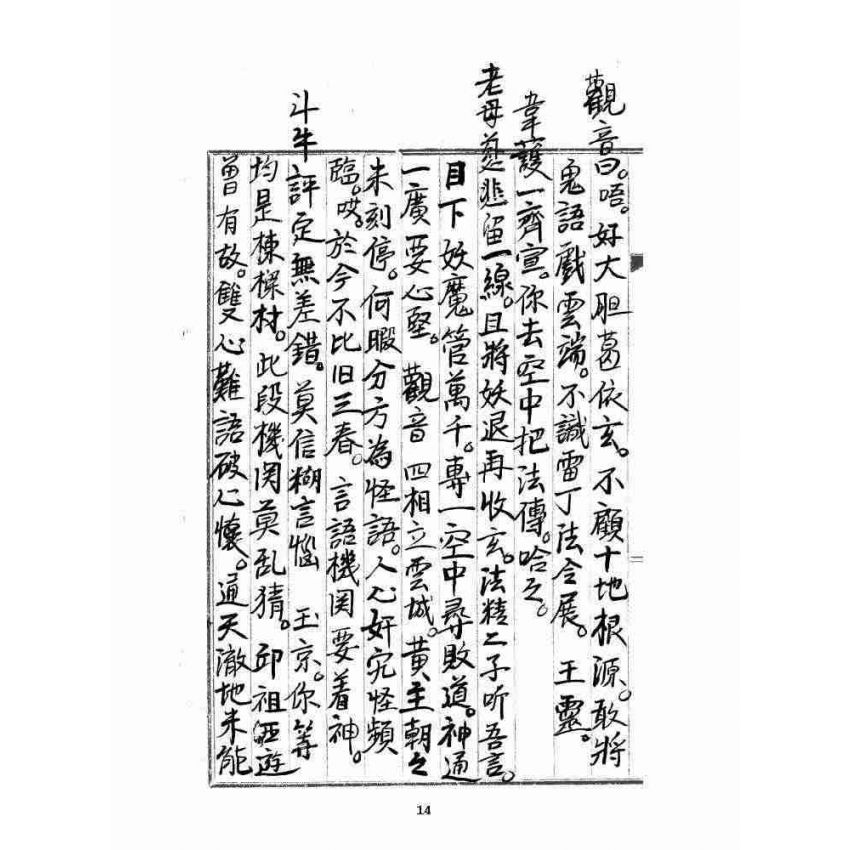 觀音曰。唔。好大胆葛依玄。不顧十地根源。敢將
鬼語戲雲端。不識雷丁法令展。王靈。
韋護一齊宣。你去空中把法傳。哈之。
老母慈悲留一線。且將妖退再收玄。法精二子听吾言。
目下妖魔管萬千。專一空中尋敗道。神通
一廣要心堅。觀音 四相立雲城。黃主朝之
未刻停。何暇分方為怪語。人心奸宄怪頻
臨。哎。於今不比旧三春。言語機関要着神。
斗牛評定無差錯。莫信糊言惱 玉京。你等
均是棟樑材。此段機関莫乱猜。邱祖西遊
曾有故。雙心難語破心懷。通天澈地未能
14